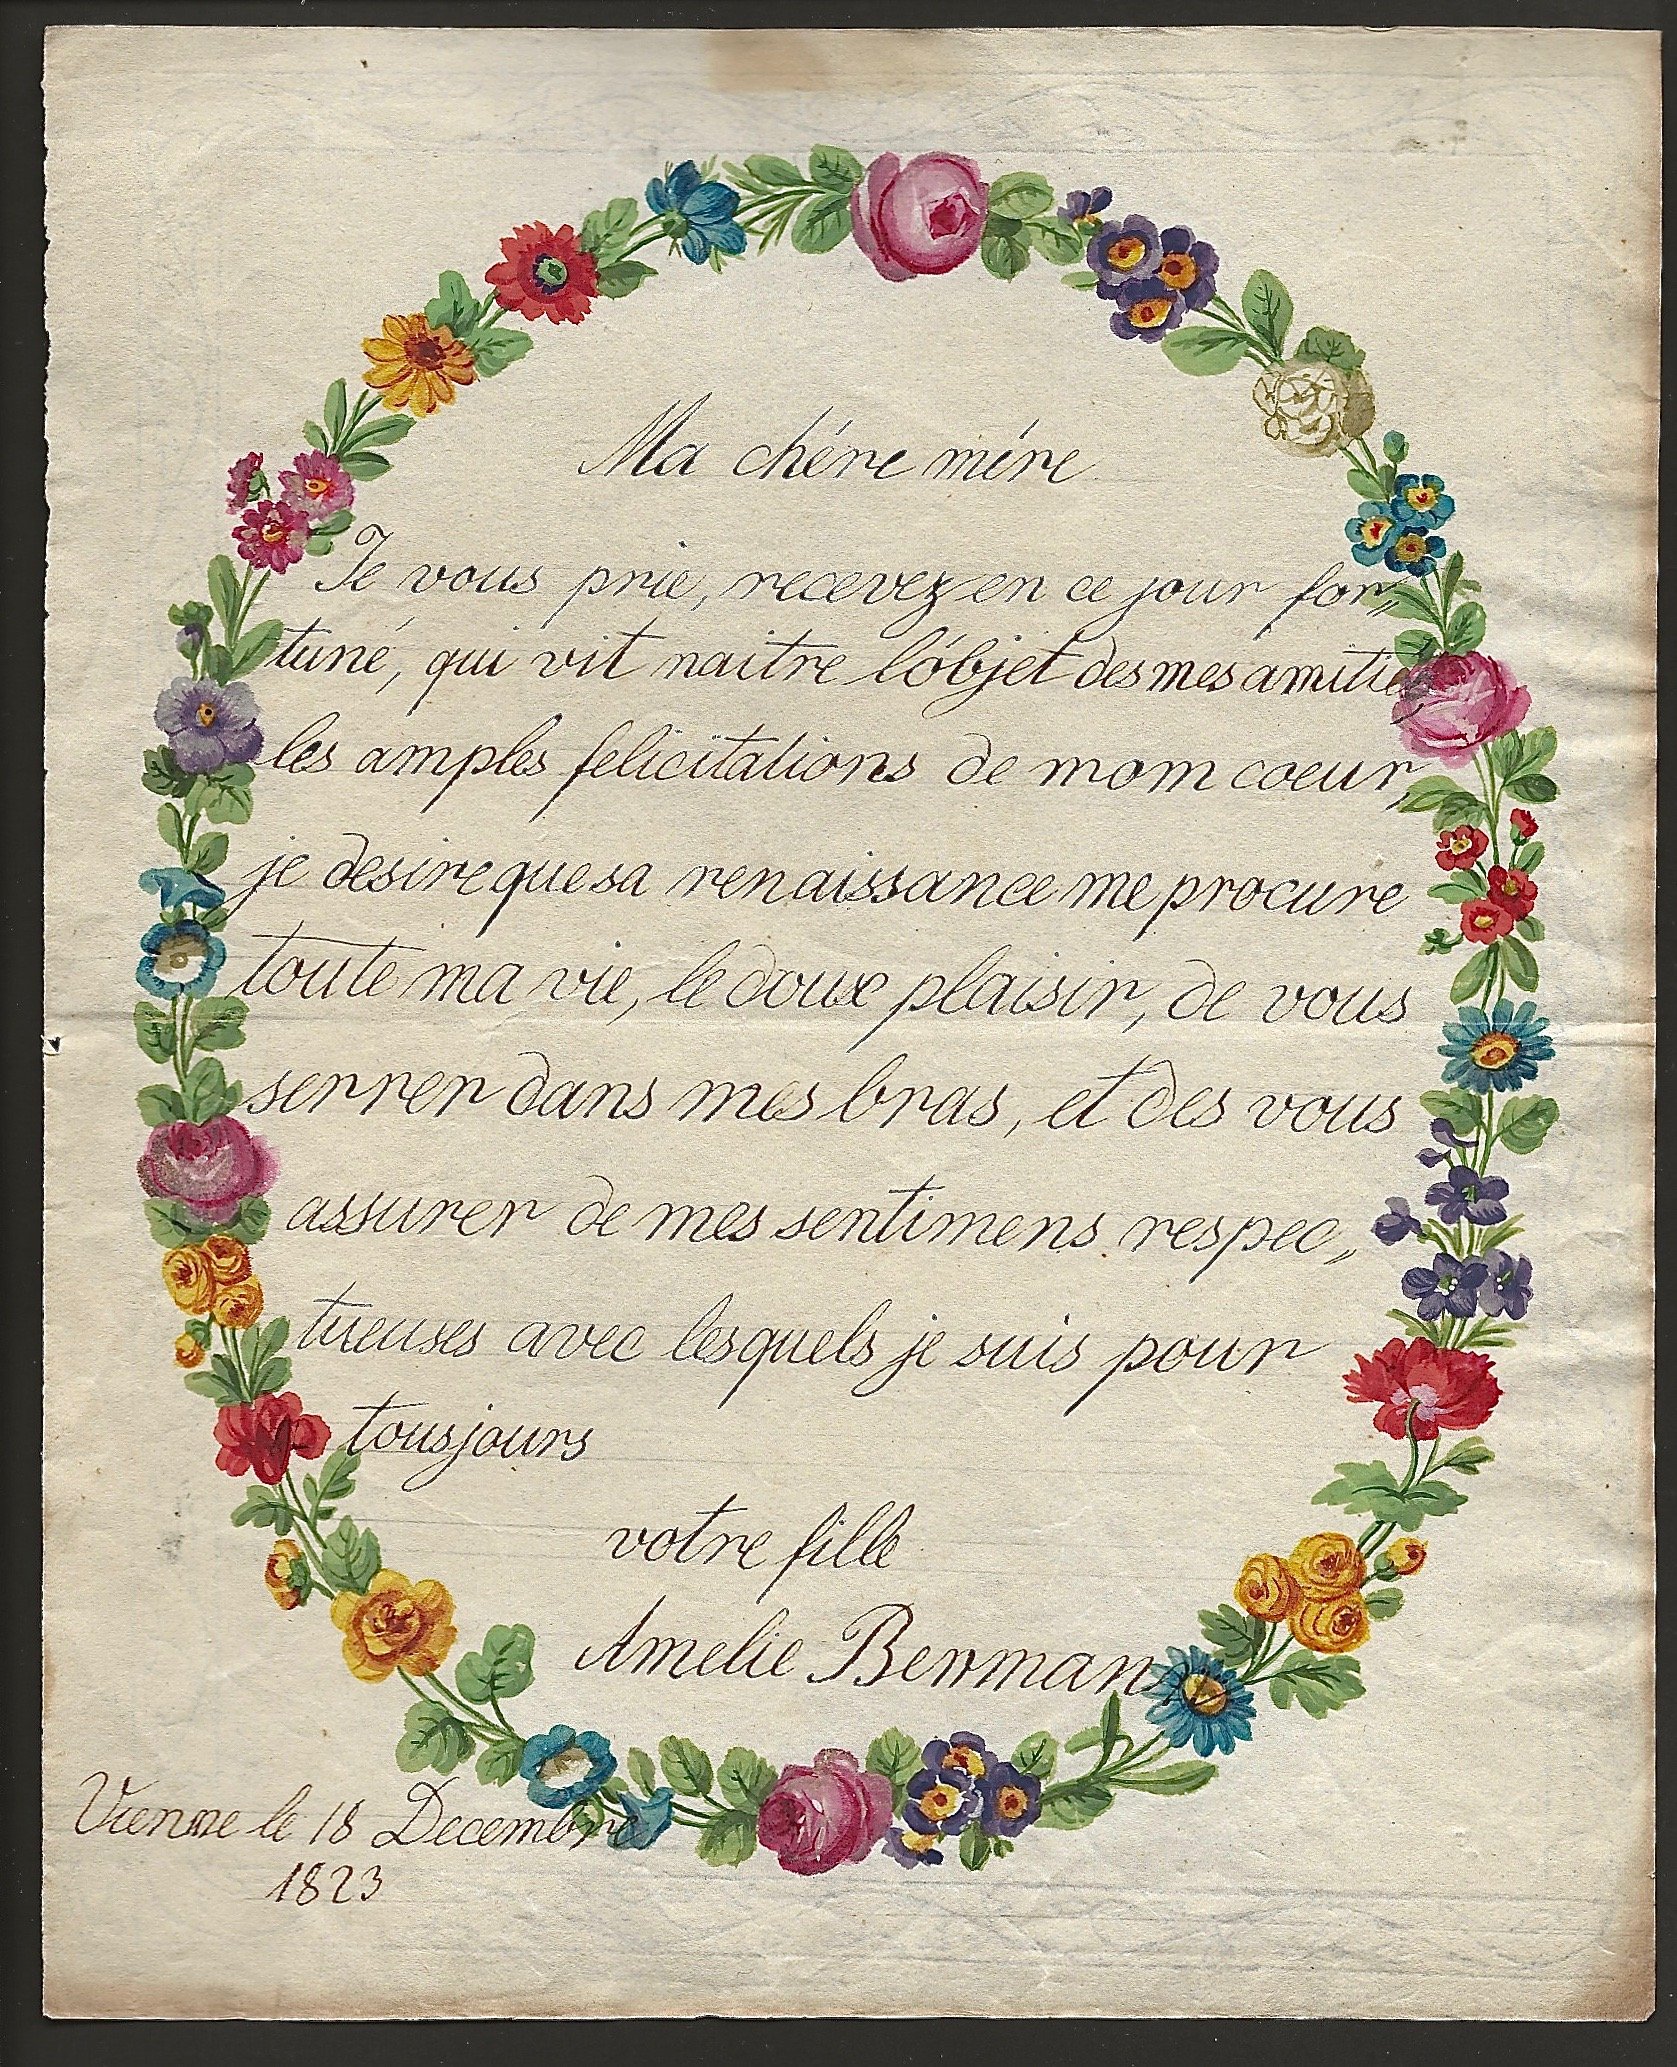 Ma chére mére
Je vous prie, recevez en ce jour for„
tuné, qui vit naitre l'óbjet des mes amitiés,
les amples felicitations de mom coeur,
je desire que sa renaissance me procure
toute ma vie, le doux plaisir, de vous
serrer dans mes bras, et des vous
assurer de mes sentimens respec„
tueuses avec lesquels je suis pour
tousjours
votre fille
Amelie Berman
Vienne le 18 Decembre
1823